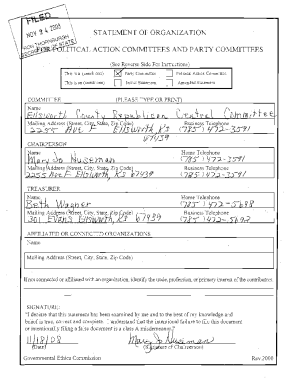 FILED
NOV 24 2008
RON THORNBURGH
SECRETARY OF STATE
STATEMENT OF ORGANIZATION
FOR POLITICAL ACTION COMMITTEES AND PARTY COMMITTEES
(See Reverse Side For Instructions)
This is a (check one) Party Committee Political Action Committee
This is an (check one) Initial Statement Amended Statement
COMMITTEE (PLEASE TYPE OR PRINT)
Name
Ellsworth County Republican Central Committee
Mailing Address (Street, City, State, Zip Code) Business Telephone
2255 Ave F Ellsworth, KS 67439 (785) 472-3591
CHAIRPERSON
Name Home Telephone
Mary Jo Huseman (785) 472-3591
Mailing Address (Street, City, State, Zip Code) Business Telephone
2255 Ave F Ellsworth, KS 67439
TREASURER
Name Home Telephone
Beth Wagner (785) 472-5698
Mailing Address (Street, City, State, Zip Code) Business Telephone
301 Evans Ellsworth, KS 67439 (785)
AFFILIATED OR CONNECTED ORGANIZATIONS
Name
Mailing Address (Street, City, State, Zip Code)
If not connected or affiliated with an organization, identify the trade, profession, or primary interest of the contributors
SIGNATURE:
"I declare that this statement has been examined by me and to the best of my knowledge and
belief is true, correct and complete. I understand that the intentional failure to file this document
or intentionally filing a false document is a class A misdemeanor."
11/18/08 Mary Jo Huseman
(Date) (Signature of Chairperson)
Governmental Ethics Commission Rev.2000